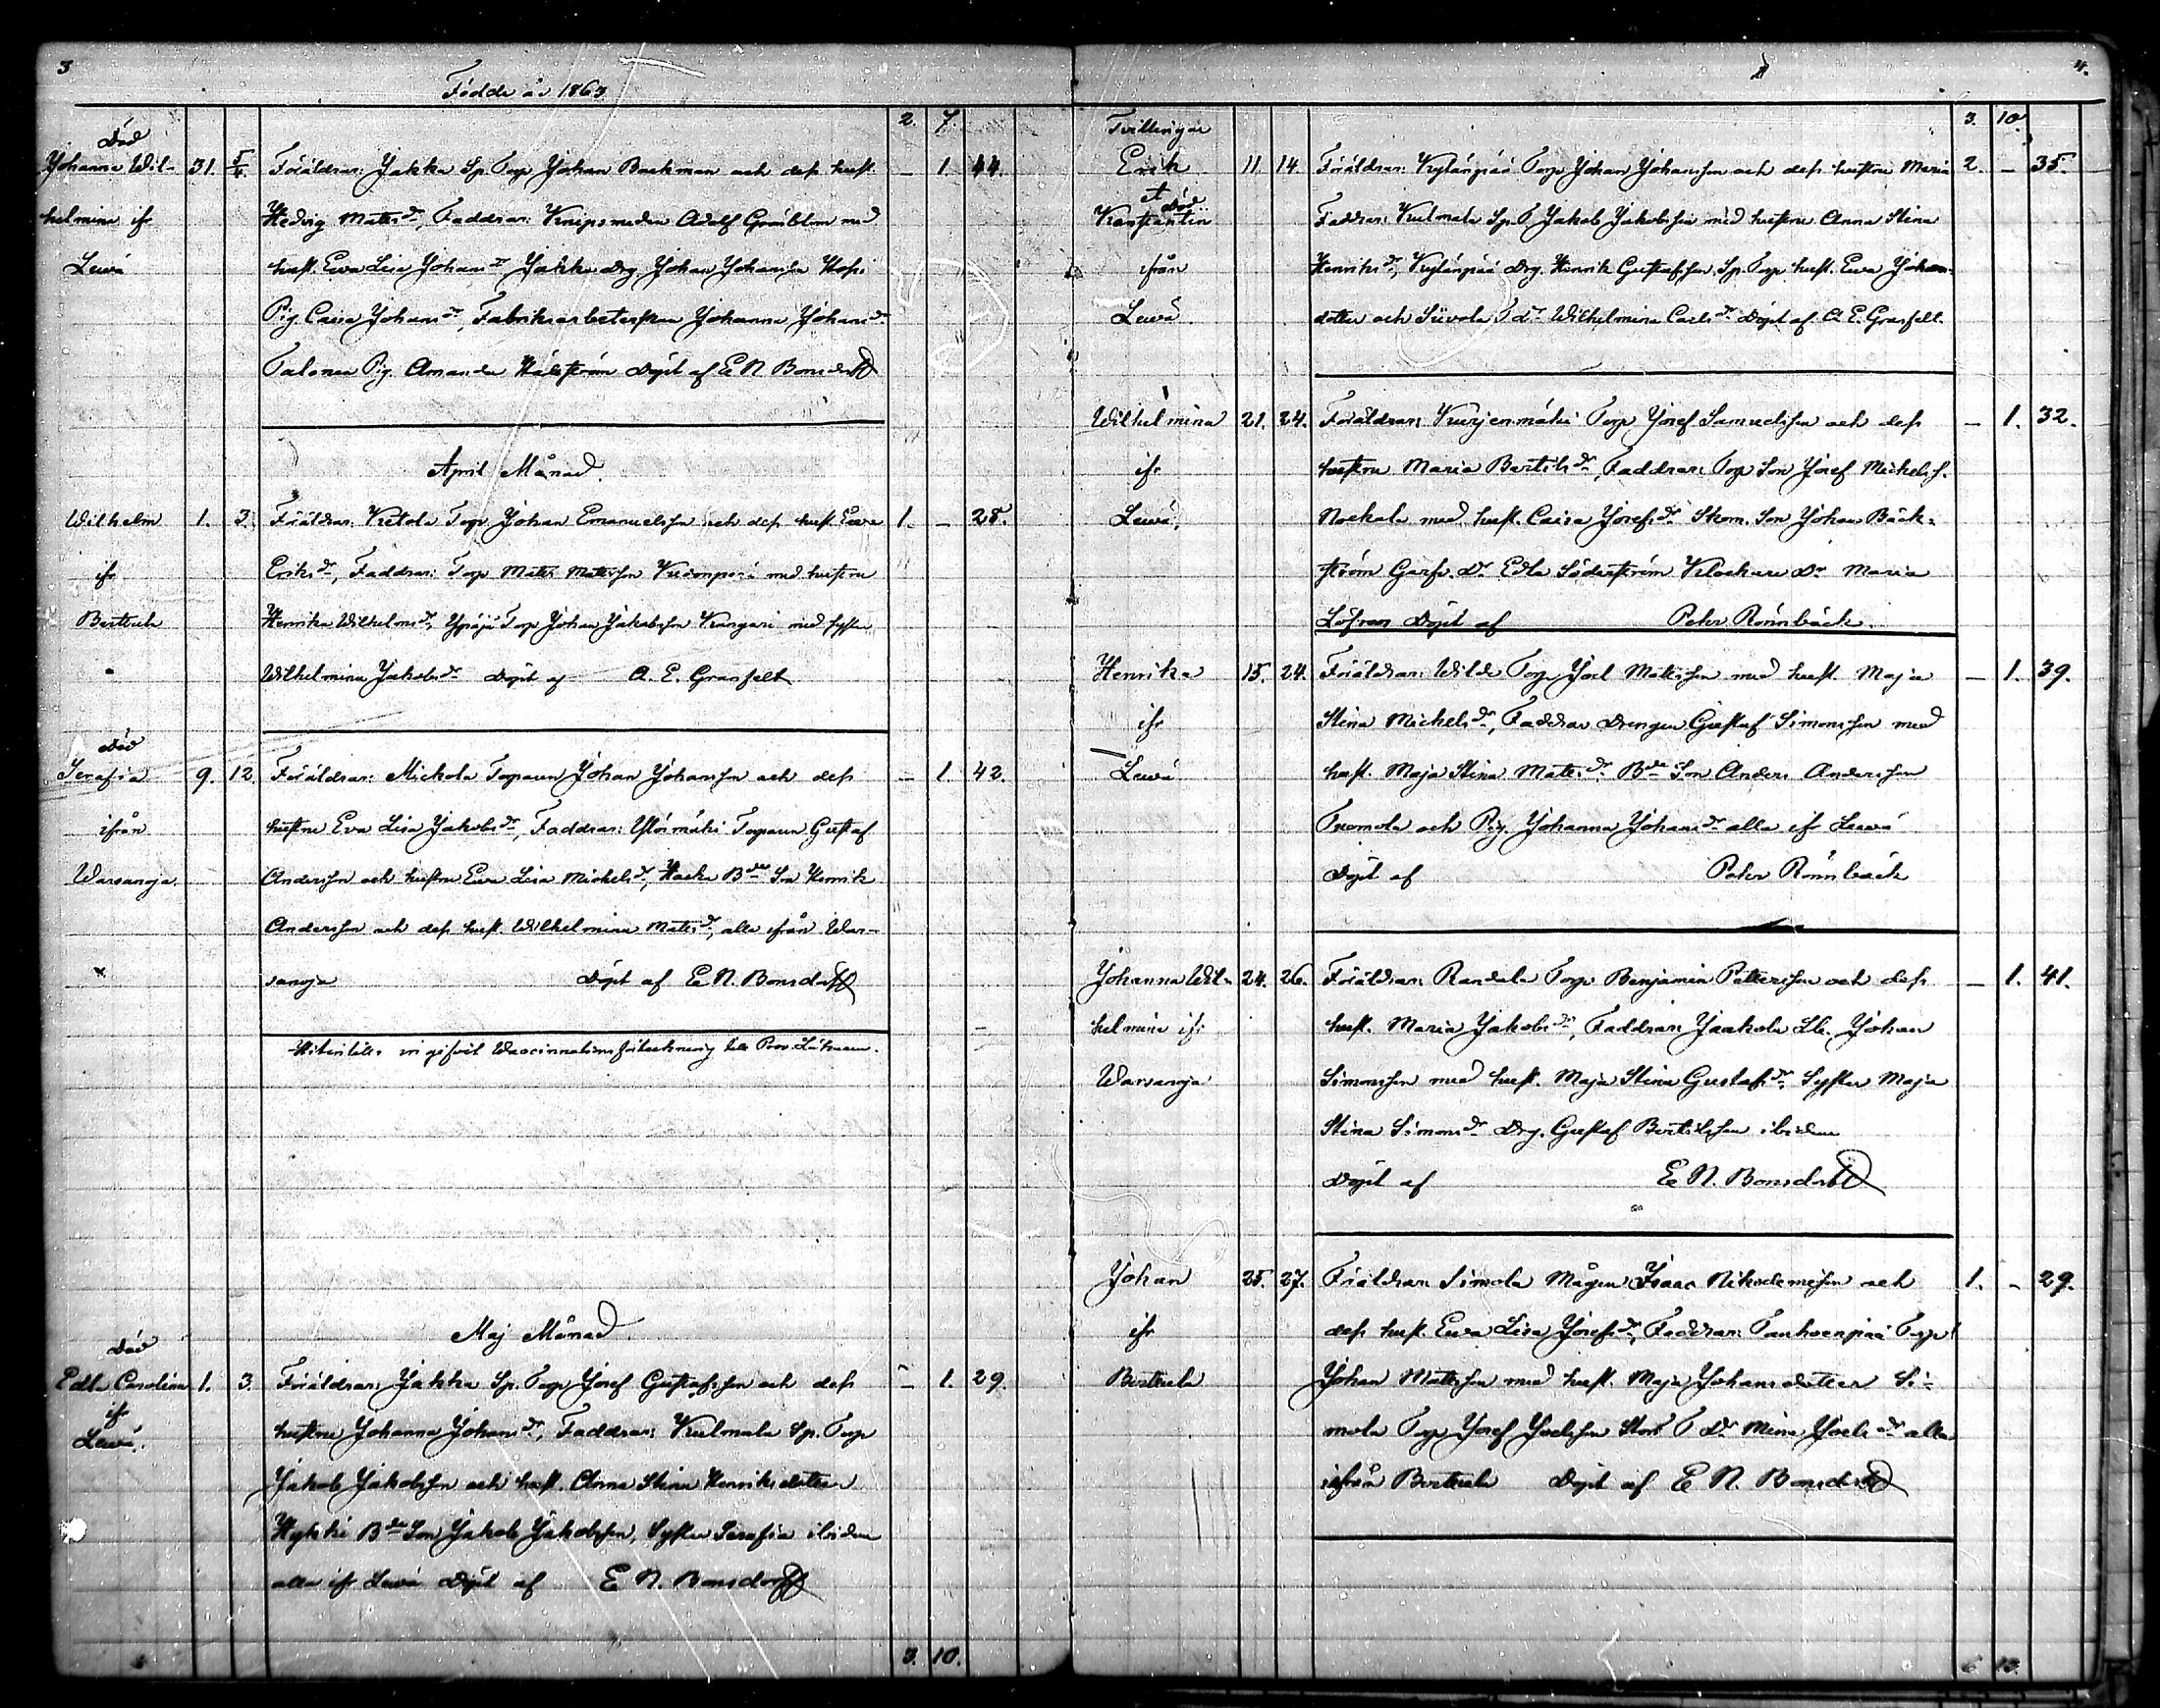 3
Födde år 1863
2. 7.
Död
Johanna Wil- 31. 5/4. Föräldrar: Jakka Sp. Torp Johan Backman och dess hust. — 1. 44.
helmina ifr Hedvig Matts dr, Faddrar: Knipsmeden Adolf Grönblom med
Lewä hust. Eva Lisa Johans dr Jakka Drg. Johan Johansson
Pig. Caisa Johans dr, Fabriksarbeterskan Johanna Johans dr
Pig. Amanda Hälström Döpt af E N. Bonsdorff
April Månad.
Wilhelm 1. 3. Föräldrar: Ketola Torp Johan Emanuelsson och dess hust. Eva 1. — 28.
ifr Eriks dr, Faddrar: Torp Matts Mattsson med hustru
Berttula Henrika Wilhelms dr, Torp Johan Jakobsson Kangari med syster
Wilhelmina Jakobs dr Döpt af A. E. Granfelt
Död
Serafia 9. 12. Föräldrar: Mickola Torparen Johan Johansson och dess — 1. 42.
ifrån hustru Eva Lisa Jakobs dr, Faddrar: Torparen Gustaf
Warsanoja. Andersson och hustru Eva Lisa Michels dr, Kaeka B de Son Henrik
Andersson och dess hust. Wilhelmina Matts dr, alla ifrån War-
sanoja Döpt af E N. Bonsdorff
Hitintills Waccinnationsförteckning till
Maj Månad.
Död
Edla Carolina 1. 3. Föräldrar: Jakka Sp. Torp Josef Gustafsson och dess — 1. 29.
ifr hustru Johanna Johans dr, Faddrar: Kulmala Sp. Torp
Lewä. Jakob Jakobsson och hust. Anna Stina Henriksdotter
Hykki B de Son Jakob Jakobsson, Syster Serafia ibidem
alla ifr Lewä Döpt af E N. Bonsdorff
3. 10.
4.
3. 10.
Tvillingar
Erik 11. 14. Föräldrar: Kylänpää Torp Johan Johansson och dess hustru Maria 2. — 35.
et Död
Konstantin Faddrar: Kulmala Sp. T Jakob Jakobsson med hustru Anna Stina
ifrån Henriks dr, Kylänpää Drg. Henrik Gustafsson, Sp. Torp hust. Eva Johans
Lewä. dotter och T dr Wilhelmina Carls dr Döpt af A E. Granfelt.
Wilhelmina 21. 24. Föräldrar: Kurjenmäki Torp Josef Samuelsson och dess — 1. 32.
ifr hustru Maria Bertils dr, Faddrar: Torp Son Josef Michelss.
Lewä. Nockala med hust. Caisa Josefs dr Skom. Son Johan Bäck-
ström Garfv. Dr Edla Söderström Klockare Dr Maria
Löfroos Döpt af Petr Rönnbäck.
Henrika 15. 24. Föräldrar: Wilde Torp Joel Mattsson med hust. Maja — 1. 39.
ifr Stina Michels dr, Faddrar Drengen Gustaf Simonsson med
Lewä hust. Maja Stina Matts dr B de Son Anders Andersson
Tuomola och Pig. Johanna Johans dr alla ifr Lewä
Döpt af Petr Rönnbäck
Johanna Wil- 24. 26. Föräldrar: Randala Torp Benjamin Pettersson och dess — 1. 41.
helmina ifr hust. Maria Jakobs dr, Faddrar: Jaakola Johan
Warsanoja Simonsson med hust. Maja Stina Gustafs dr Syster Maja
Stina Simons dr Drg. Gustaf Bertilsson ibidem
Döpt af E N. Bonsdorff
Johan 25. 27. Föräldrar: Simola Mågen Isaac Nikodemsson och 1. — 29.
ifr dess hust. Eva Lisa Josefs dr, Faddrar: Torp
Berttula Johan Mattsson med hust. Maja Johansdotter Si-
mola Torp Josef Joelsson T Dr Mina Joels dr alla
ifrån Berttula Döpt af E N. Bonsdorff
6 13.